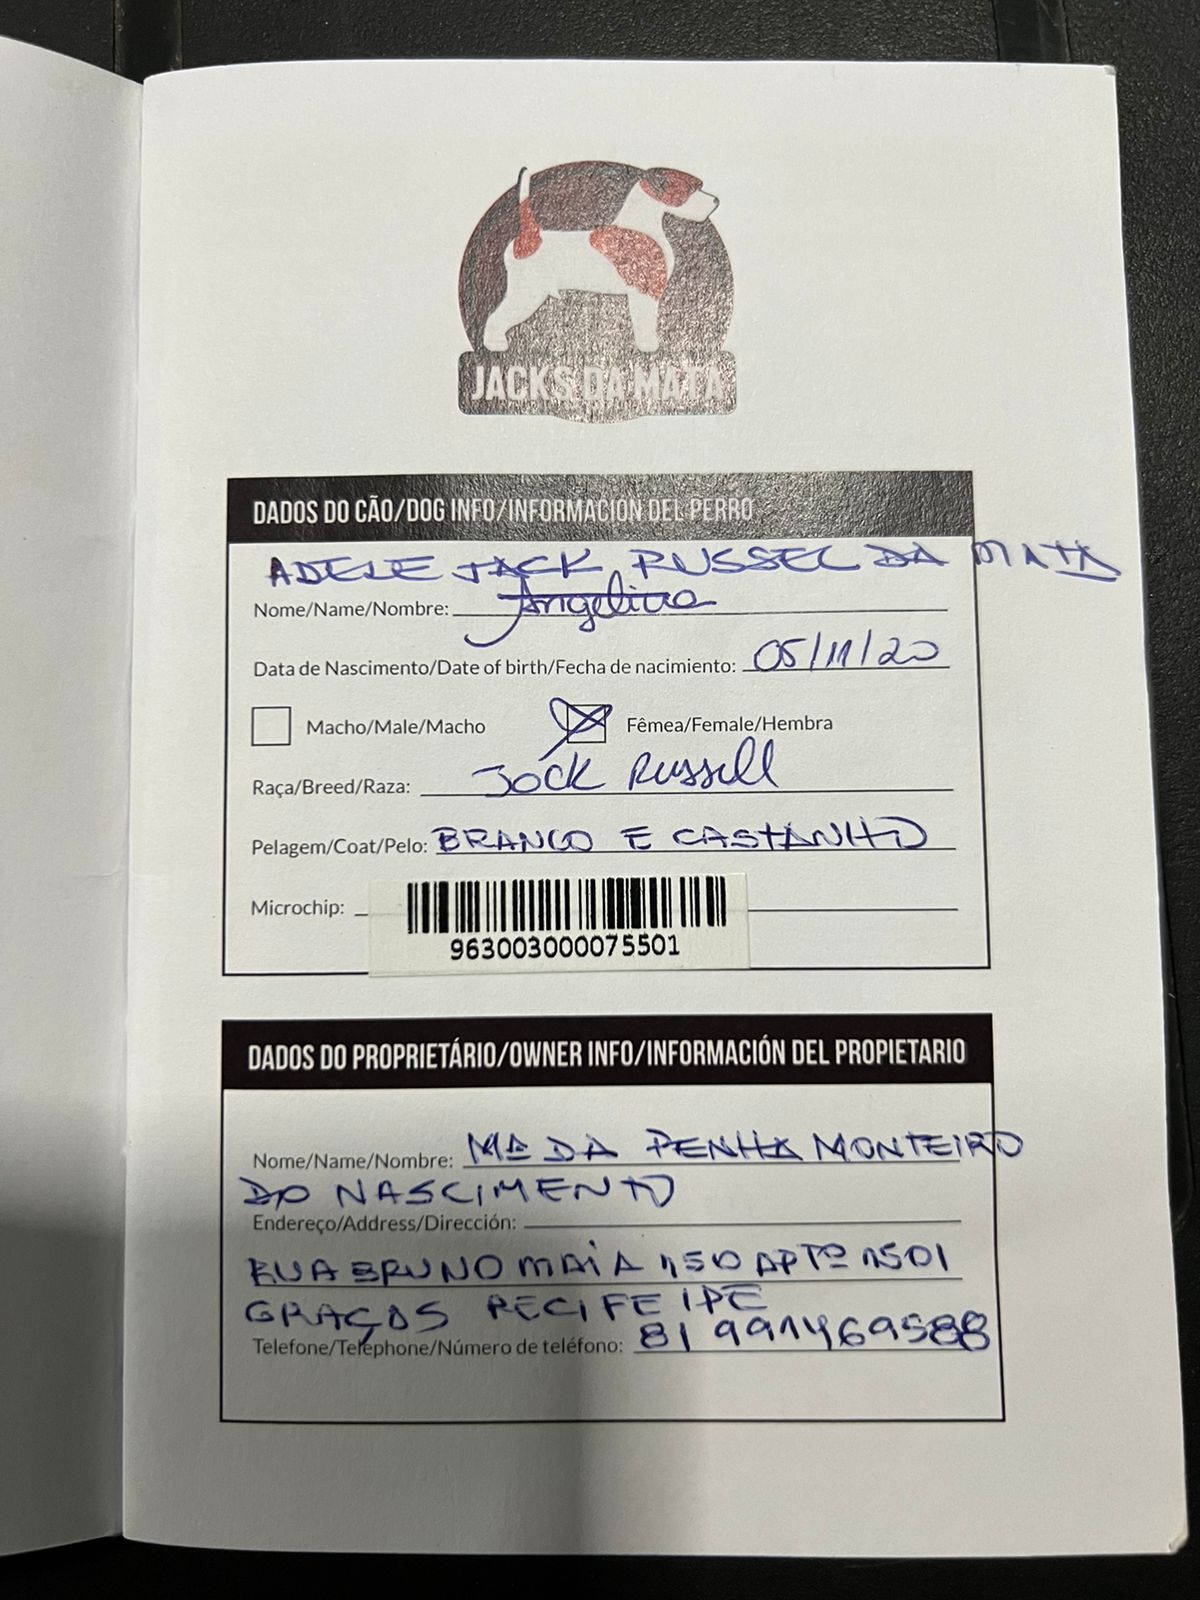 JACKS DA MATA
DADOS DO CÃO/DOG INFO/INFORMACIÓN DEL PERRO
ADELE JACK RUSSEL DA MATA
Nome/Name/Nombre: Angelina
Data de Nascimento/Date of birth/Fecha de nacimiento: 05/11/20
Macho/Male/Macho Fêmea/Female/Hembra
Raça/Breed/Raza: Jack Russell
Pelagem/Coat/Pelo: BRANCO E CASTANHO
Microchip:
963003000075501
DADOS DO PROPRIETÁRIO/OWNER INFO/INFORMACIÓN DEL PROPIETARIO
Nome/Name/Nombre: Mª DA PENHA MONTEIRO
DO NASCIMENTO
Endereço/Address/Dirección:
RUA BRUNO MAIA 150 APTº 1501
GRAÇAS RECIFE IPE
Telefone/Telephone/Número de teléfono: 81 991469588